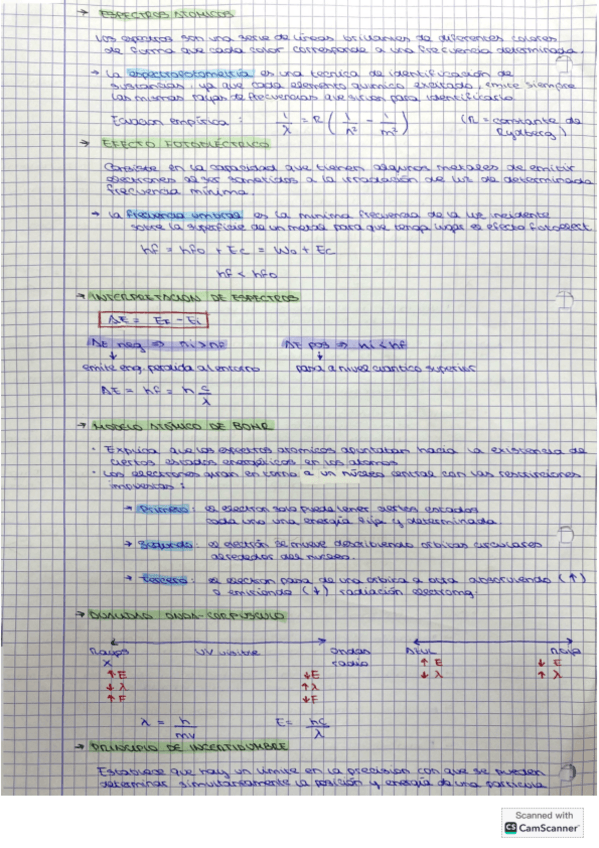 → ESPECTROS ATOMICOS
Los espectros son una serie de líneas brillantes de diferentes colores
de forma que cada color corresponde a una frecuencia determinada.
→ La espectrofotometría es una tecnica de identificación de
sustancias, ya que cada elemento químico excitado, emite siempre
las mismas rayas de frecuencias que sirven para identificarlo.
Ecuacion empírica : 1/λ = R (1/n² - 1/m²) (R = constante de
Rydberg)
→ EFECTO FOTOELÉCTRICO
Consiste en la capacidad que tienen algunos metales de emitir
electrones al ser sometidos a la irradiación de luz de determinada
frecuencia mínima
→ La frecuencia umbral es la mínima frecuencia de la luz incidente
sobre la superficie de un metal para que tenga lugar el efecto fotoelect.
hf = hf0 + Ec = W0 + Ec
hf < hf0
→ INTERPRETACION DE ESPECTROS
ΔE = Ef - Ei
ΔE neg ⇒ ni > nf ΔE pos ⇒ ni < nf
↓ ↓
emite eng. perdida al entorno pasa a nivel cuantico superior
ΔE = hf = h c/λ
→ MODELO ATÓMICO DE BOHR
· Explica que los espectros atomicos apuntaban hacia la existencia de
ciertos estados energéticos en los atomos
· Los electrones giran en torno a un núcleo central con las restricciones
impuestas :
→ Primero : el electron solo puede tener ciertos estados
cada uno una energía fija y determinada
→ Segundo : el electrón se mueve describiendo orbitas circulares
alrededor del nucleo.
→ Tercero : el electron pasa de una orbita a otra absorviendo (↑)
o emitiendo (↓) radiación electromg.
→ DUALIDAD ONDA-CORPUSCULO
Rayos UV visible Ondas AZUL ROJA
X radio ↑ E ↓ E
↑ E ↓ E ↓ λ ↑ λ
↓ λ ↑ λ
↑ F ↓ F
λ = h/mv E = hc/λ
→ PRINCIPIO DE INCERTIDUMBRE
Establece que hay un límite en la precision con que se pueden
determinar simultaneamente la posición y energía de una particula
Scanned with
CS CamScanner